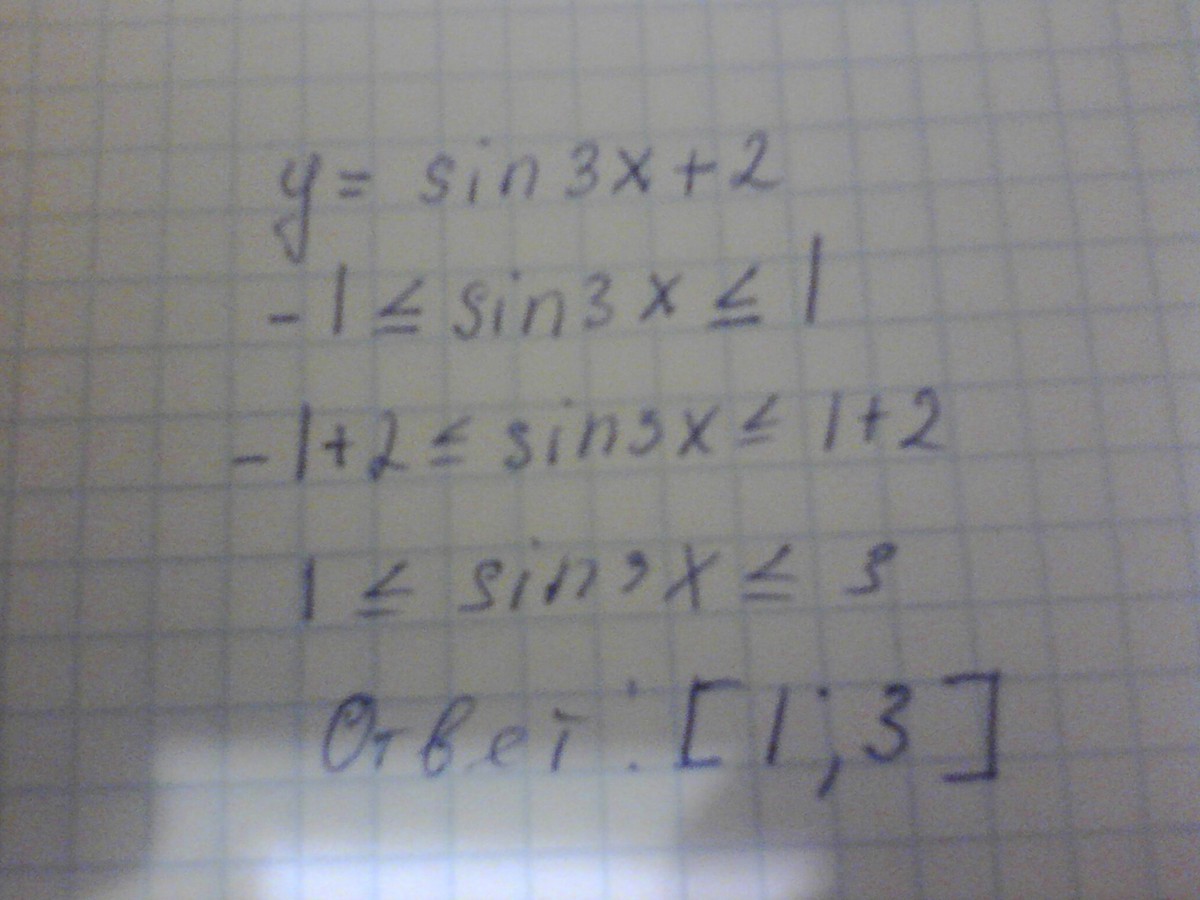 y = sin 3x + 2
-1 ≤ sin 3x ≤ 1
-1+2 ≤ sin 3x ≤ 1+2
1 ≤ sin 3x ≤ 3
Ответ: [1; 3]